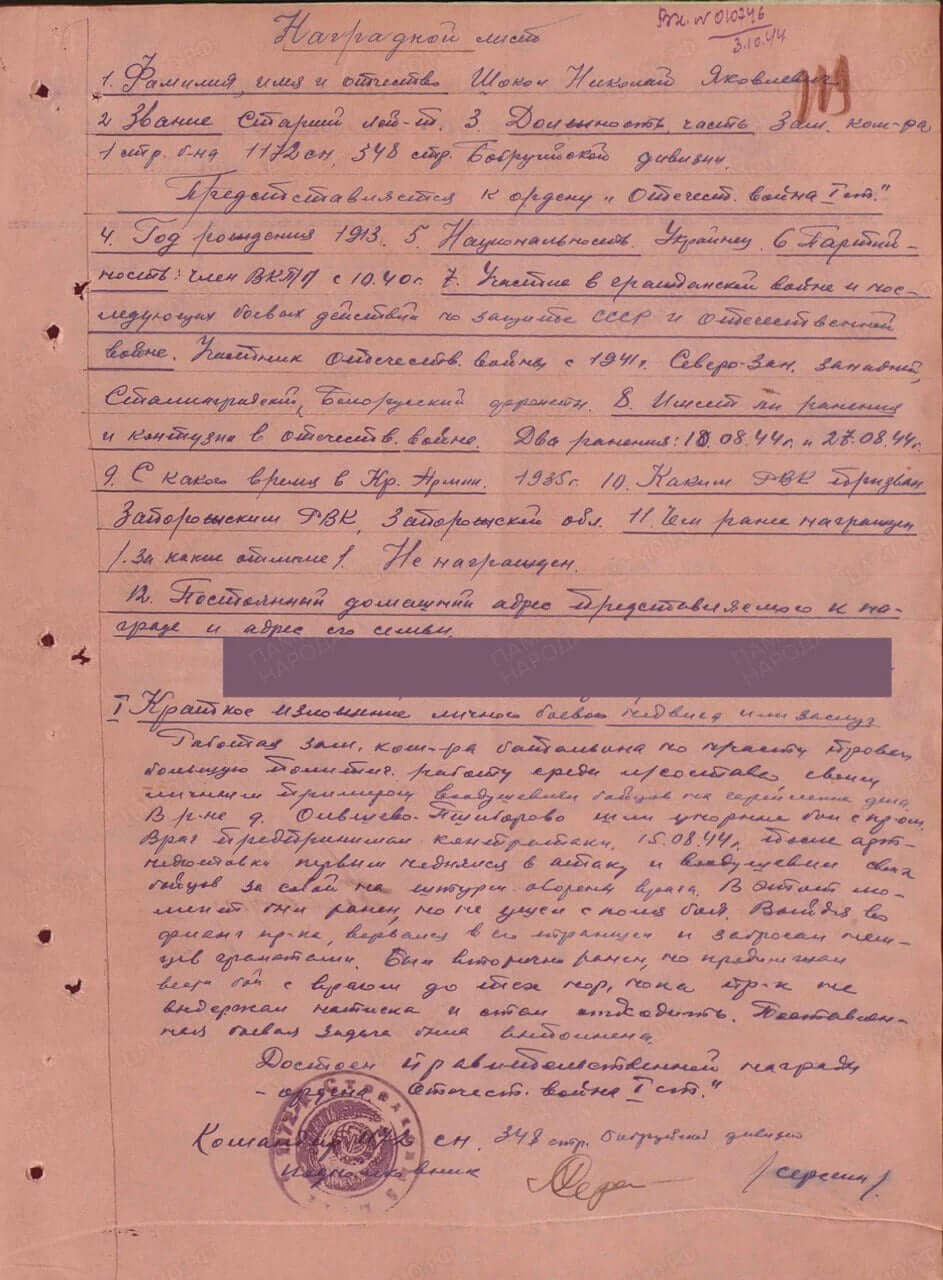 Вх. № 010746
3.10.44
Наградной лист
119
1. Фамилия, имя и отчество Шокол Николай Яковлевич
2 Звание Старший лей-т. 3. Должность, часть Зам. ком-ра
1 стр. б-на 1172 сп, 348 стр. Бобруйской дивизии.
Представляется к ордену „Отечест. война I ст."
4. Год рождения 1913. 5. Национальность. Украинец. 6 Партий-
ность: член ВКПП с 10.40г. 7. Участие в гражданской войне и пос-
ледующих боевых действий по защите СССР и отечественной
войне. Участник отечеств. войны с 1941г. Северо-Зап. западный,
Сталинградский, Белорусский фронты. 8. Имеет ли ранения
и контузии в отечеств. войне. Два ранения: 18.08.44г. и 27.08.44г.
9. С какого время в Кр. Армии. 1935г. 10. Каким РВК призван
Запорожским РВК, Запорожской обл. 11. Чем ранее награжден
/. за какие отличие /. Не награжден.
12. Постоянный домашний адрес представляемого к на-
граде и адрес его семьи.
I Краткое изложение личного боевого подвига или заслуг
Работая зам. ком-ра батальона по провел
большую политич. работу среди л/состава своим
личным примером воодушевлял бойцов на дела.
В р-не д. шли упорные бои с пр-ом.
Враг предпринимал контратаки. 15.08.44г. после арт-
подготовки первым поднялся в атаку и воодушевил своих
бойцов за собой на штурм обороны врага. В этот мо-
мент был ранен, но не ушел с поля боя. Выйдя во
фланг пр-ка, ворвался в его траншеи и забросал нем-
цев гранатами. Был вторично ранен, но продолжал
вести бой с врагом до тех пор, пока пр-к не
выдержал натиска и стал отходить. Поставлен-
ная боевая задача была выполнена.
Достоен правительственной награды
- ордена „Отечест. война I ст."
Командир 1172 сп. 348 стр. бобруйской дивизии
Подполковник /Серегин/.